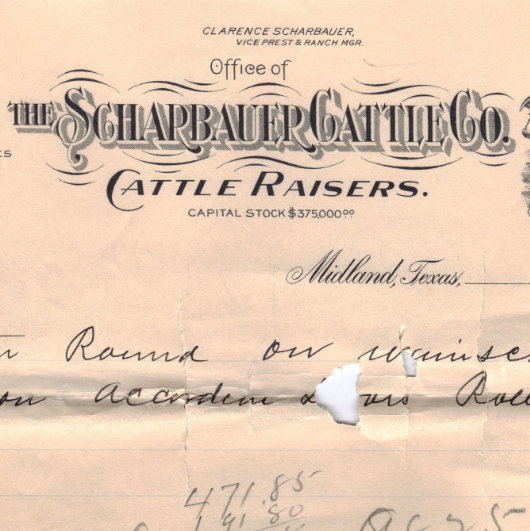 CLARENCE SCHARBAUER,
VICE PREST & RANCH MGR.
Office of
THE SCHARBAUER CATTLE CO.
ES
CATTLE RAISERS.
CAPITAL STOCK $375,000⁰⁰
Midland, Texas,
Round on wainsc
on Accordein ors Roll
471.85